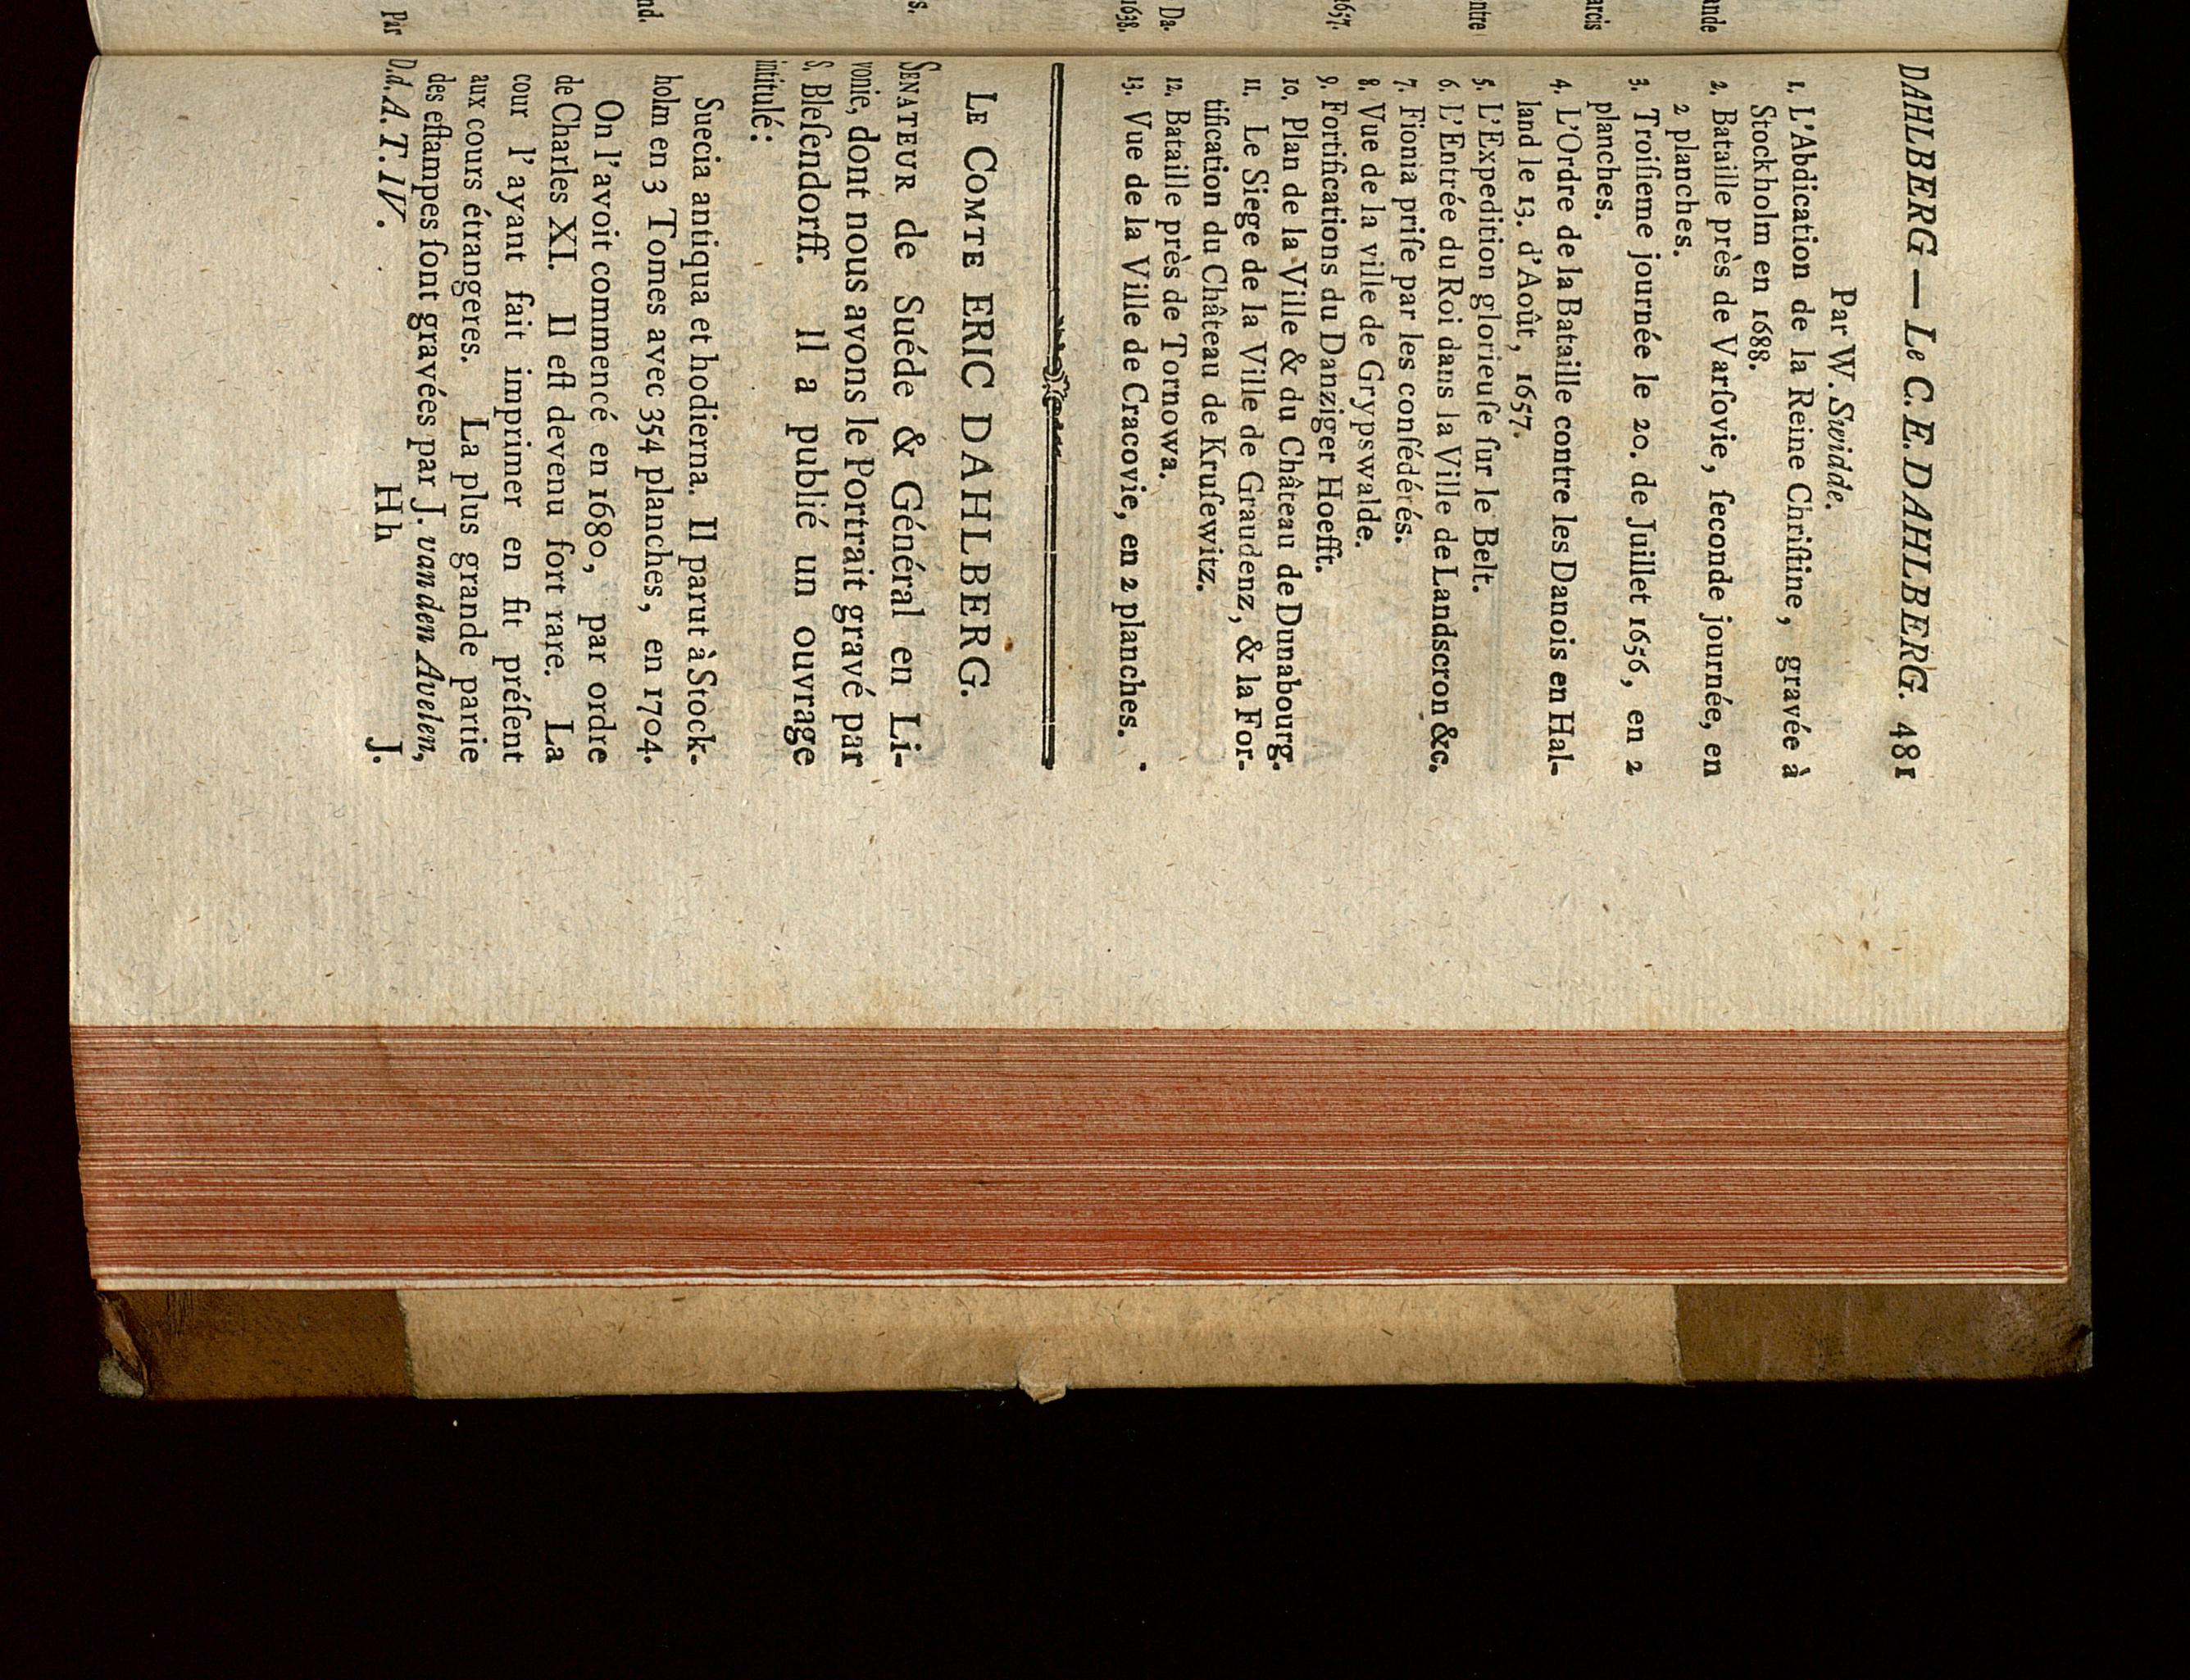 DAHLBERG — Le C. E. DAHLBERG. 481
Par W. Swidde.
1. L'Abdication de la Reine Chriſtine, gravée à
Stockholm en 1688.
2. Bataille près de Varſovie, ſeconde journée, en
2 planches.
3. Troiſieme journée le 20. de Juillet 1656, en 2
planches.
4. L'Ordre de la Bataille contre les Danois en Hal-
land le 13. d'Août, 1657.
5. L'Expedition glorieuſe ſur le Belt.
6. L'Entrée du Roi dans la Ville de Landscron &c.
7. Fionia priſe par les conſédérés.
8. Vue de la ville de Grypswalde.
9. Fortifications du Danziger Hoefft.
10. Plan de la Ville & du Château de Dunabourg.
11. Le Siege de la Ville de Graudenz, & la For-
tification du Château de Kruſewitz.
12. Bataille près de Tornowa.
13. Vue de la Ville de Cracovie, en 2 planches.
LE COMTE ERIC DAHLBERG.
SENATEUR de Suéde & Général en Li-
vonie, dont nous avons le Portrait gravé par
S. Bleſendorff. Il a publié un ouvrage
intitulé:
Suecia antiqua et hodierna. Il parut à Stock-
holm en 3 Tomes avec 354 planches, en 1704.
On l'avoit commencé en 1680, par ordre
de Charles XI. Il eſt devenu fort rare. La
cour l'ayant fait imprimer en fit préſent
aux cours étrangeres. La plus grande partie
des eſtampes ſont gravées par J. van den Avelen,
D. d. A. T. IV. H h J.
ande
arcis
ntre
1657.
Da-
1638.
s.
nd.
Par